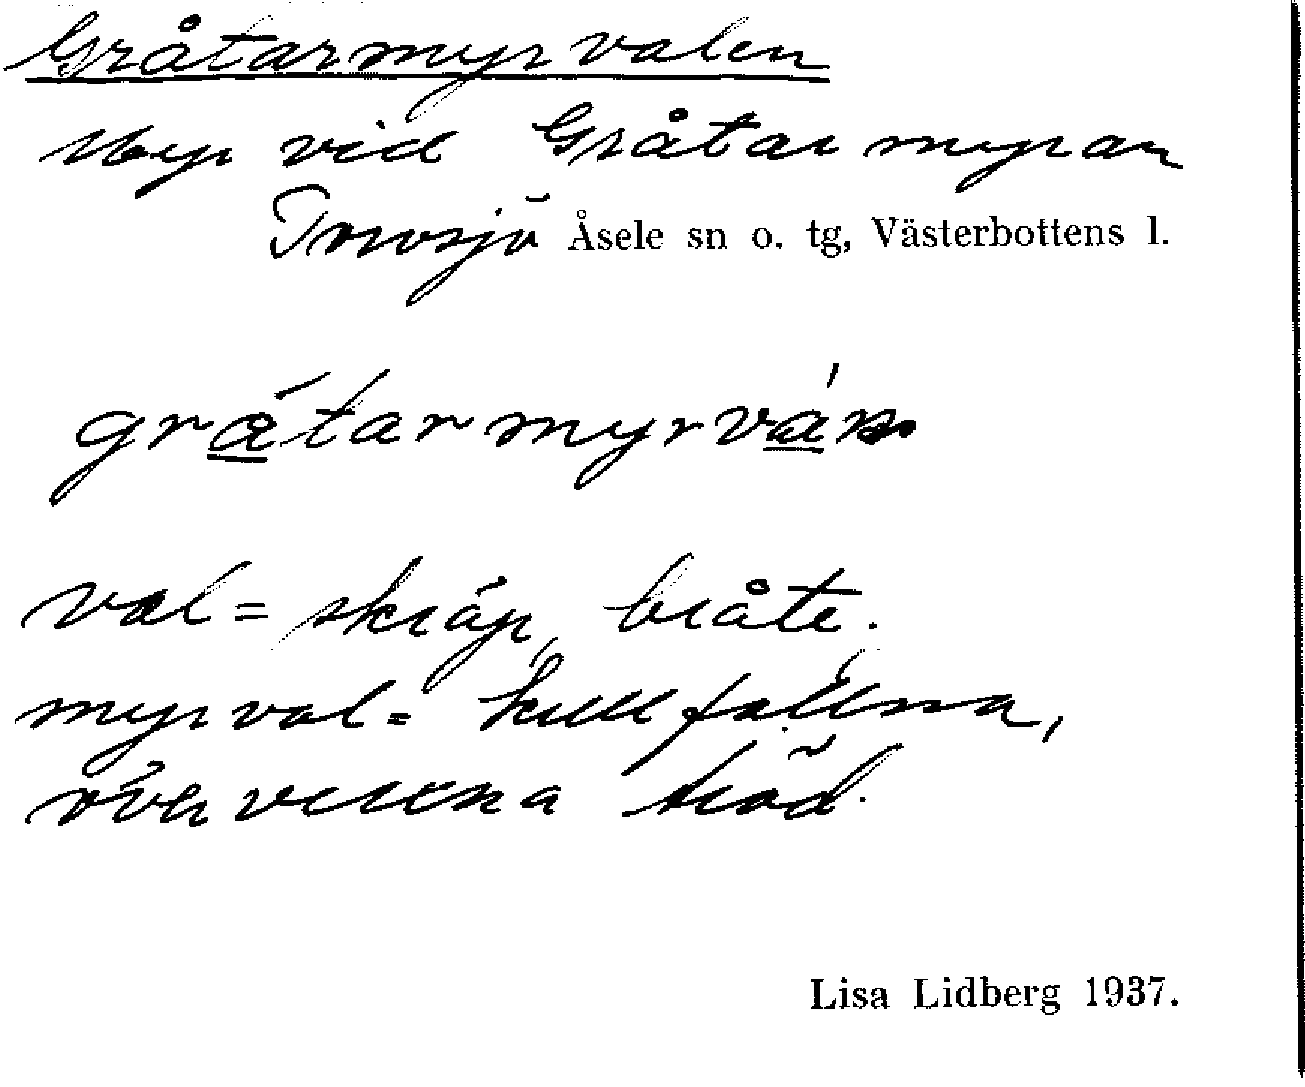 Gråtarmyrvalen
Myr vid Gråtarmyran
Torvsjö Åsele sn o. tg, Västerbottens l.
gråtarmyrván
val = skräp, bråte.
myrval = kullfallna,
övervuxna träd.
Lisa Lidberg 1937.